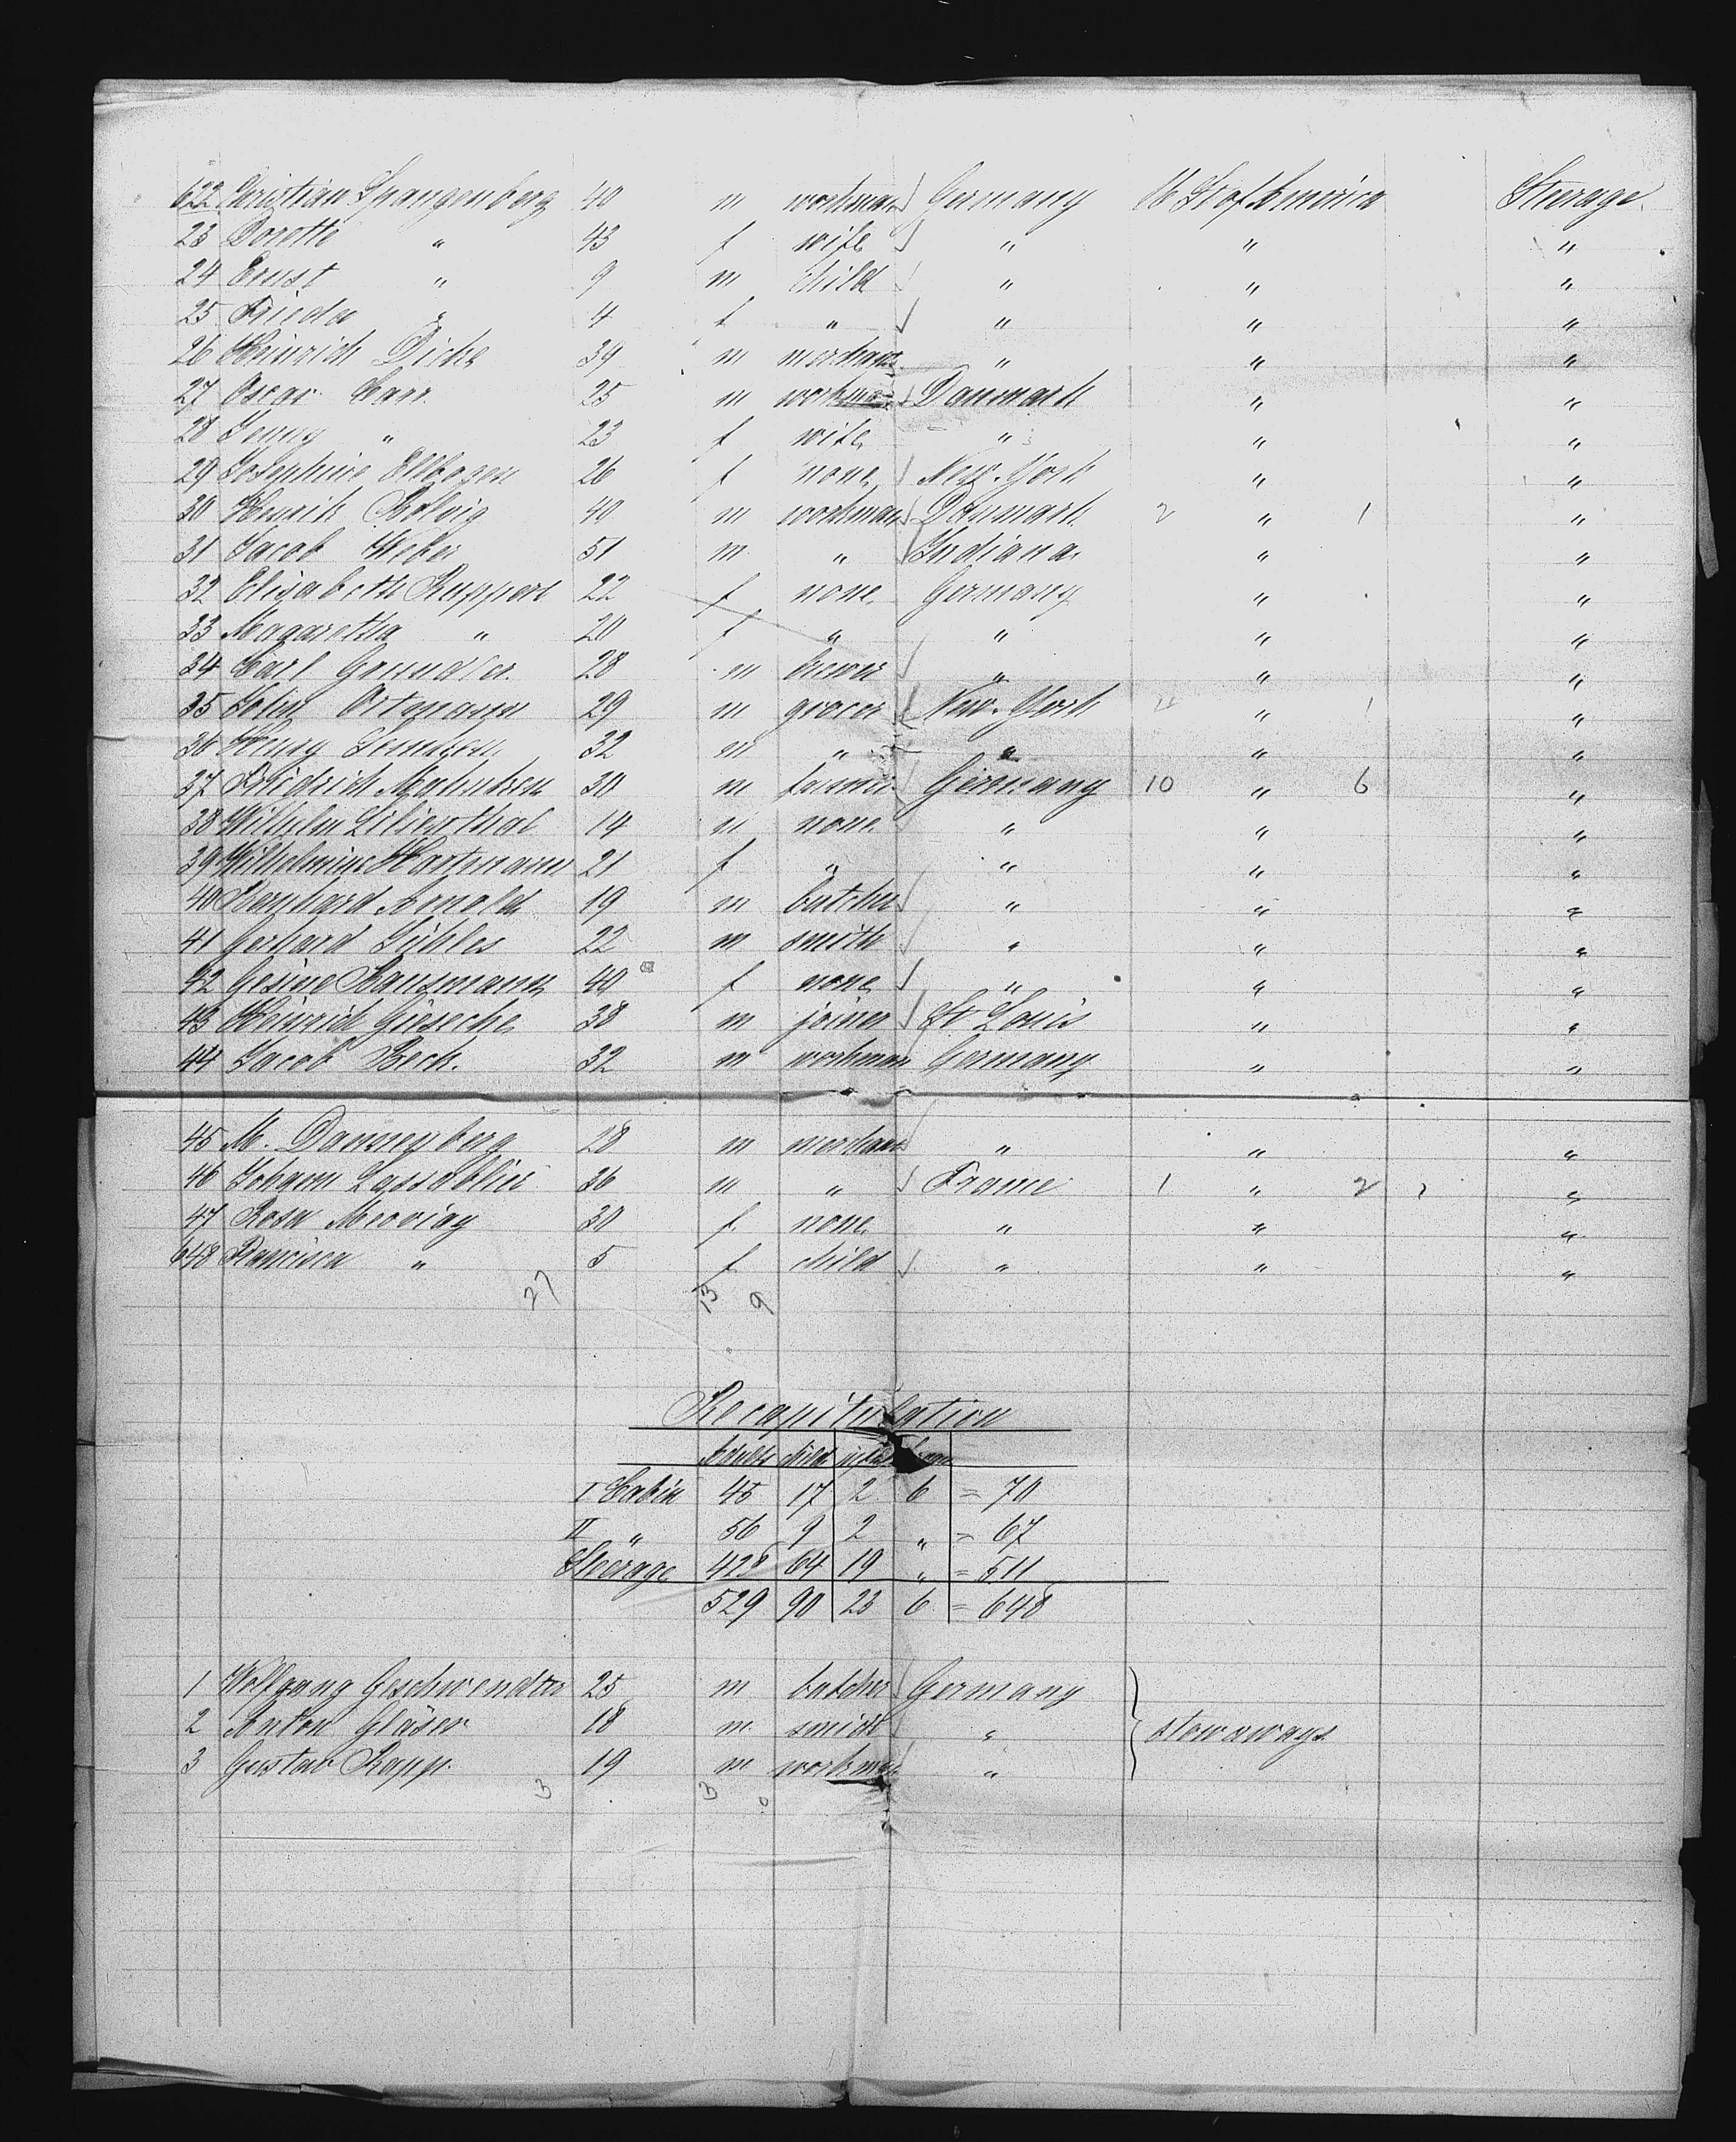 622 Christian Spangenberg 40 m workman Germany U St of America Steerage
23 Dorette " 43 f wife " " "
24 Ernst " 9 m child " " "
25 Frieda " 4 f " " " "
26 Heinrich Dicke 39 m merchant " " "
27 Oscar Carr 25 m workman Danmark " "
28 Jenny " 23 f wife " " "
29 Josephine Ellbogen 26 f none New-York " "
30 Henrik Kolvig 40 m workman Danmark 2 " 1 "
31 Jacob Weber 51 m " Indiana " "
32 Elisabeth Ruppert 22 f none Germany " "
33 Magaretha " 20 f " " " "
34 Carl 28 m brewer " " "
35 John Ortmann 29 m grocer New-York " 1 "
36 Henry 32 m " " " "
37 Friedrich 30 m farmer Germany 10 " 6 "
38 Wilhelm Lilienthal 14 m none " " "
39 Wilhelmine Hartmann 21 f " " " "
40 Bernhard Arnold 19 m butcher " " "
41 Gerhard 22 m smith " " "
42 Gesine Hausmann 40 f none " " "
43 Heinrich Giesecke 38 m joiner St Louis " "
44 Jacob Beck. 32 m workman Germany " "
45 M. Dannenberg 28 m merchant " " "
46 Johann 36 m " France 1 " 2 "
47 Rosa 30 f none " " "
648 Francisca " 5 f child " " "
27 13 9
Recapitulation
Adults child
I Cabin 45 17 2 6 = 70
II " 56 9 2 " = 67
Steerage 428 64 19 " = 511
529 90 23 6 = 648
1 Wolfgang Geschwendter 25 m butcher Germany
2 Anton Gläser 18 m smith " stowaways
3 Gustav Rapp. 19 m workman "
3 3 0